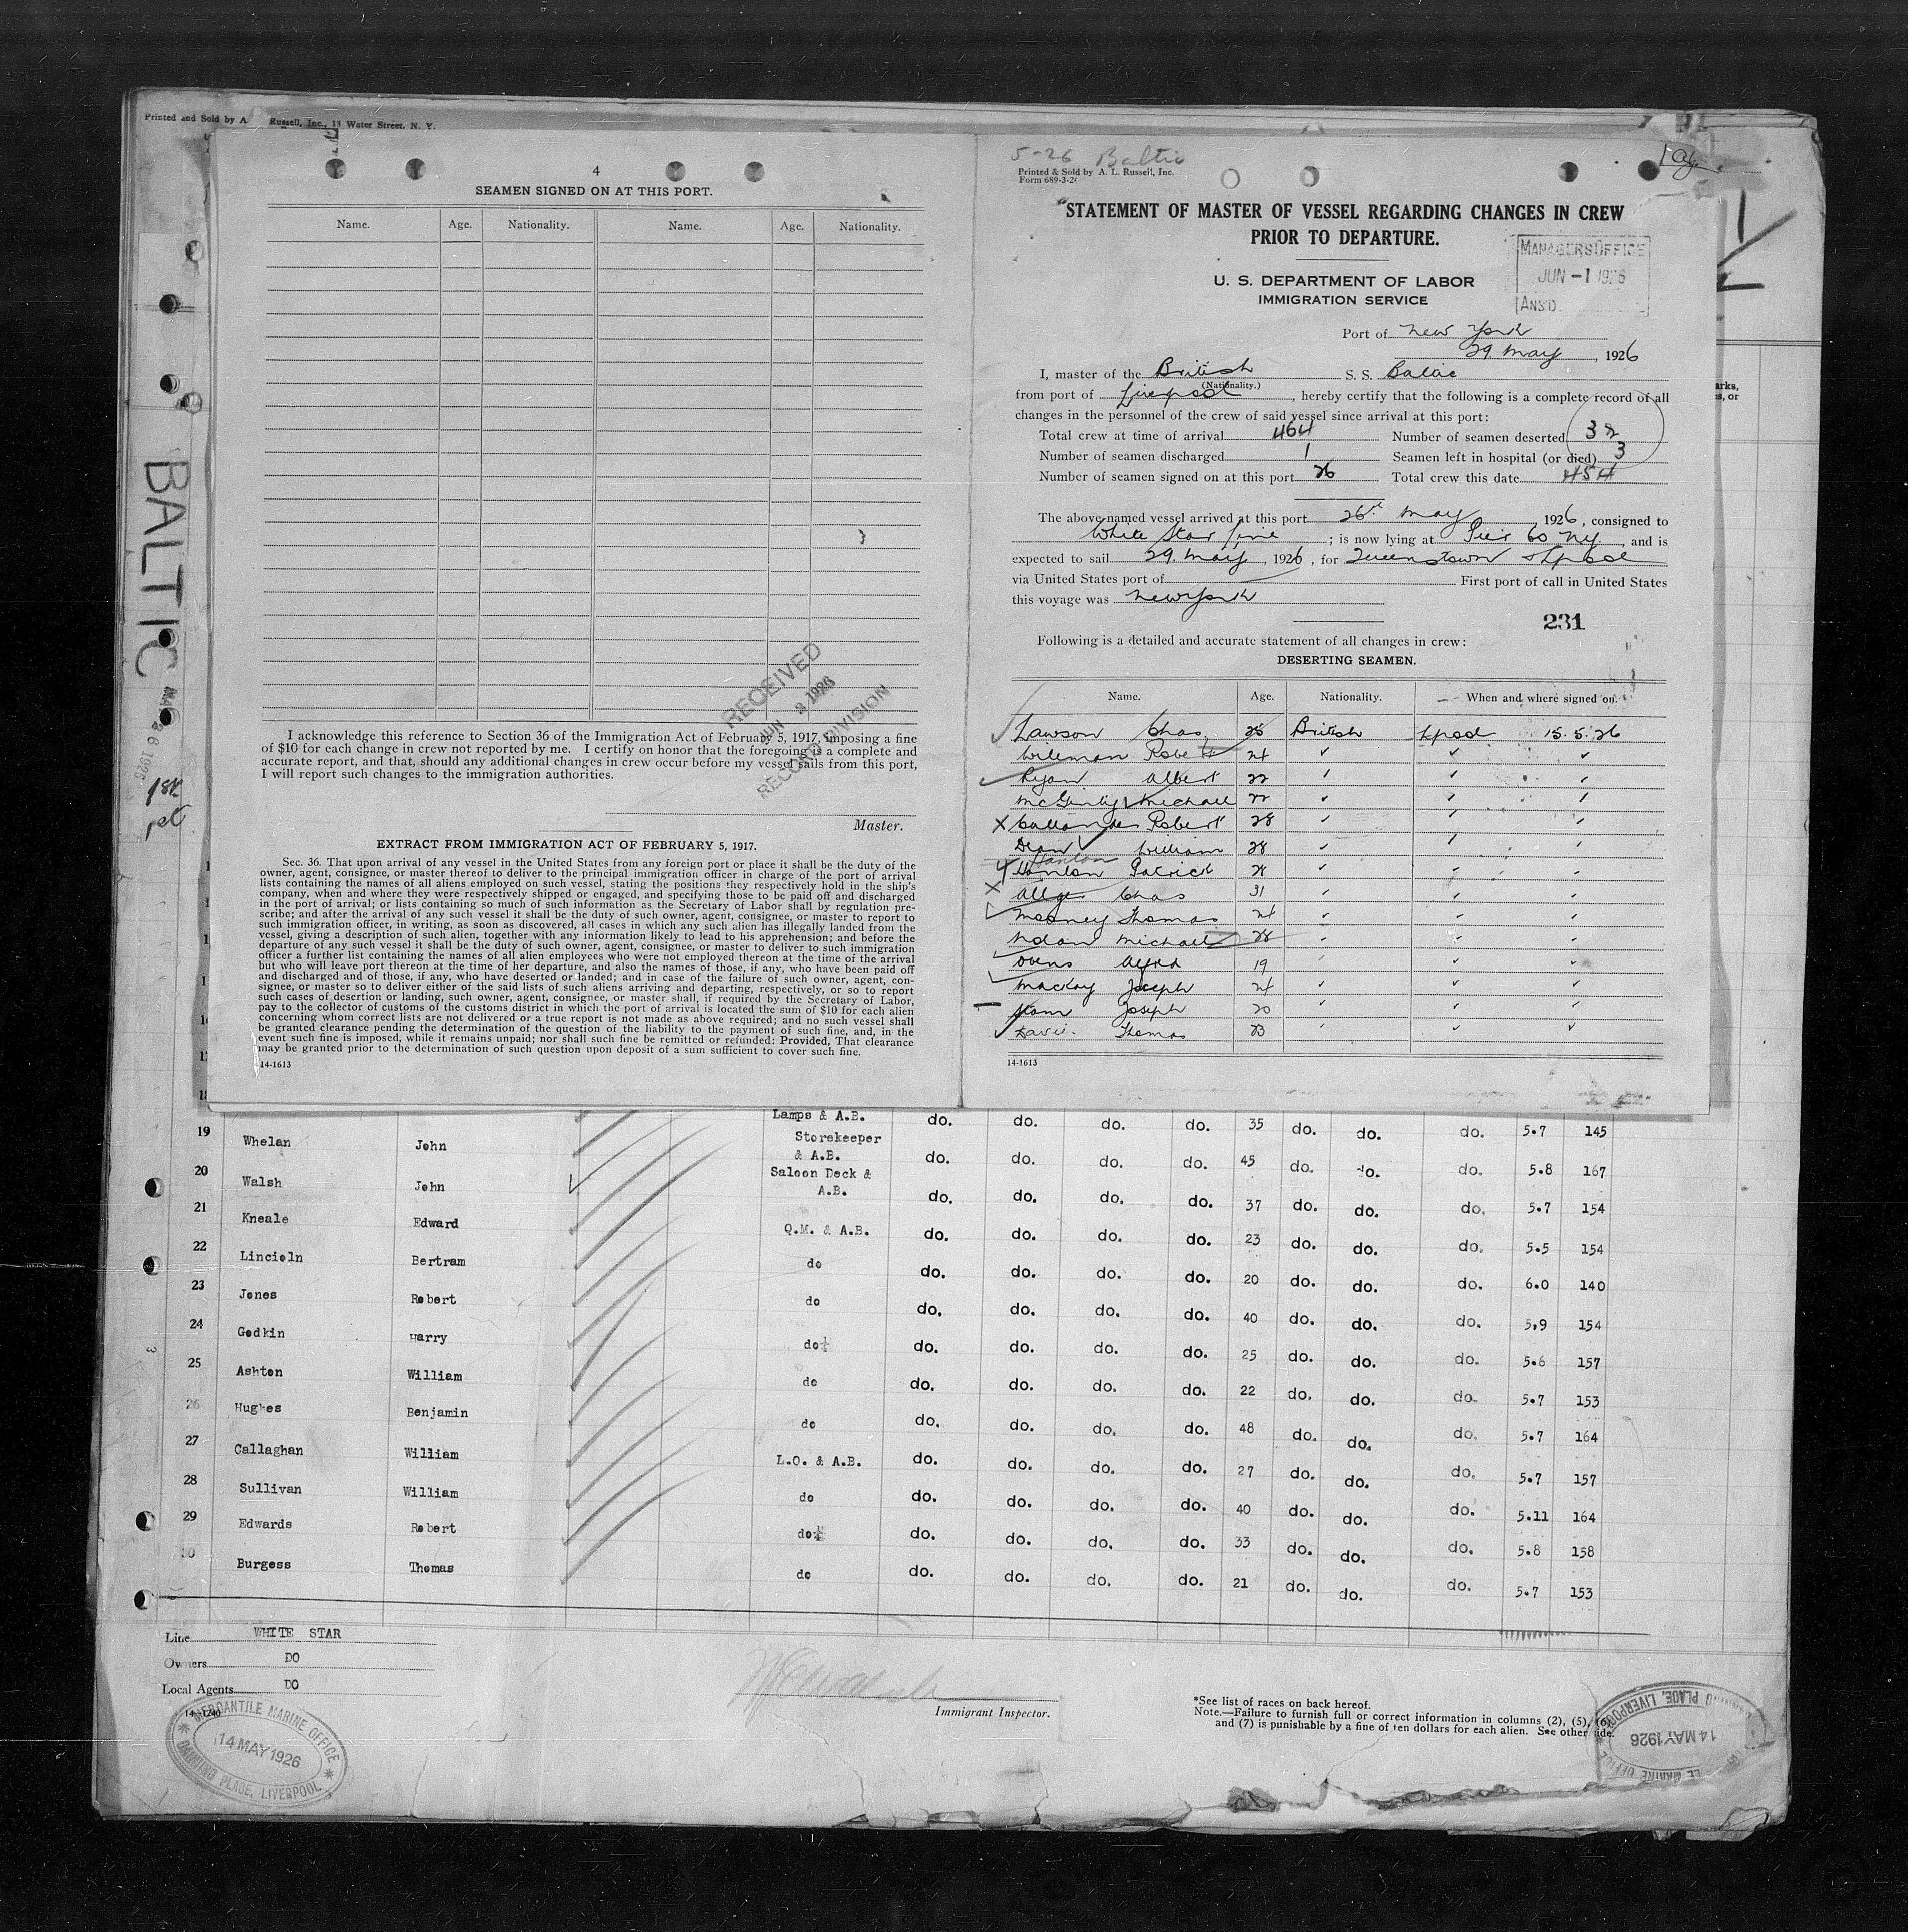 Printed and Sold by A. Russell, Inc., 13 Water Street, N. Y.
4
SEAMEN SIGNED ON AT THIS PORT.
Name. Age. Nationality. Name. Age. Nationality.
RECEIVED
JUN 2 1926
RECORD DIVISION
I acknowledge this reference to Section 36 of the Immigration Act of February 5, 1917, imposing a fine
of $10 for each change in crew not reported by me. I certify on honor that the foregoing is a complete and
accurate report, and that, should any additional changes in crew occur before my vessel sails from this port,
I will report such changes to the immigration authorities.
Master.
EXTRACT FROM IMMIGRATION ACT OF FEBRUARY 5, 1917.
Sec. 36. That upon arrival of any vessel in the United States from any foreign port or place it shall be the duty of the
owner, agent, consignee, or master thereof to deliver to the principal immigration officer in charge of the port of arrival
lists containing the names of all aliens employed on such vessel, stating the positions they respectively hold in the ship's
company, when and where they were respectively shipped or engaged, and specifying those to be paid off and discharged
in the port of arrival; or lists containing so much of such information as the Secretary of Labor shall by regulation pre-
scribe; and after the arrival of any such vessel it shall be the duty of such owner, agent, consignee, or master to report to
such immigration officer, in writing, as soon as discovered, all cases in which any such alien has illegally landed from the
vessel, giving a description of such alien, together with any information likely to lead to his apprehension; and before the
departure of any such vessel it shall be the duty of such owner, agent, consignee, or master to deliver to such immigration
officer a further list containing the names of all alien employees who were not employed thereon at the time of the arrival
but who will leave port thereon at the time of her departure, and also the names of those, if any, who have been paid off
and discharged and of those, if any, who have deserted or landed; and in case of the failure of such owner, agent, con-
signee, or master so to deliver either of the said lists of such aliens arriving and departing, respectively, or so to report
such cases of desertion or landing, such owner, agent, consignee, or master shall, if required by the Secretary of Labor,
pay to the collector of customs of the customs district in which the port of arrival is located the sum of $10 for each alien
concerning whom correct lists are not delivered or a true report is not made as above required; and no such vessel shall
be granted clearance pending the determination of the question of the liability to the payment of such fine, and, in the
event such fine is imposed, while it remains unpaid; nor shall such fine be remitted or refunded: Provided, That clearance
may be granted prior to the determination of such question upon deposit of a sum sufficient to cover such fine.
14-1613
5-26 Baltic
Printed & Sold by A. L. Russell, Inc.
Form 689-3-26
STATEMENT OF MASTER OF VESSEL REGARDING CHANGES IN CREW
PRIOR TO DEPARTURE.
MANAGERS OFFICE
JUN -1 1926
ANS'D
U. S. DEPARTMENT OF LABOR
IMMIGRATION SERVICE
Port of New York
29 May, 1926
I, master of the British S. S. Baltic
(Nationality.)
from port of Liverpool, hereby certify that the following is a complete record of all
changes in the personnel of the crew of said vessel since arrival at this port:
Total crew at time of arrival 464 Number of seamen deserted 32
Number of seamen discharged 1 Seamen left in hospital (or died) 3
Number of seamen signed on at this port 26 Total crew this date 454
The above-named vessel arrived at this port 26th May, 1926, consigned to
White Star Line; is now lying at Pier 60 NY., and is
expected to sail 29 May, 1926, for Queenstown & Lpool
via United States port of First port of call in United States
this voyage was New York
231
Following is a detailed and accurate statement of all changes in crew:
DESERTING SEAMEN.
Name. Age. Nationality. When and where signed on.
Lawson Chas. 25 British Lpool 15.5.26
Wileman Robert 24
Ryan Albert 22
McGinty Michael 22
Robert 28
Dean William 28
Hanlon
Hanlon Patrick 28
Chas 31
Mooney Thomas 24
Nolan Michael 28
Owens Alfred 19
Mackay Joseph 24
Joseph 20
Davie Thomas 23
14-1613
BALTIC
MAY 26 1926
Lamps & A.B. do. do. do. do. 35 do. do. do. 5.7 145
19 Whelan John Storekeeper & A.B. do. do. do. do. 45 do. do. do. 5.8 167
20 Walsh John Saloon Deck & A.B. do. do. do. do. 37 do. do. do. 5.7 154
21 Kneale Edward Q.M. & A.B. do. do. do. do. 23 do. do. do. 5.5 154
22 Lincieln Bertram do do. do. do. do. 20 do. do. do. 6.0 140
23 Jones Robert do do. do. do. do. 40 do. do. do. 5.9 154
24 Godkin Harry do do. do. do. do. 25 do. do. do. 5.6 157
25 Ashton William do do. do. do. do. 22 do. do. do. 5.7 153
26 Hughes Benjamin do do. do. do. do. 48 do. do. do. 5.7 164
27 Callaghan William L.O. & A.B. do. do. do. do. 27 do. do. do. 5.7 157
28 Sullivan William do do. do. do. do. 40 do. do. do. 5.11 164
29 Edwards Robert do do. do. do. do. 33 do. do. do. 5.8 158
30 Burgess Thomas do do. do. do. do. 21 do. do. do. 5.7 153
Line WHITE STAR
Owners DO
Local Agents DO
14-1240
MERCANTILE MARINE OFFICE
14 MAY 1926
CANNING PLACE, LIVERPOOL
Immigrant Inspector.
*See list of races on back hereof.
Note.—Failure to furnish full or correct information in columns (2), (5), (6),
and (7) is punishable by a fine of ten dollars for each alien. See other side.
14 MAY 1926